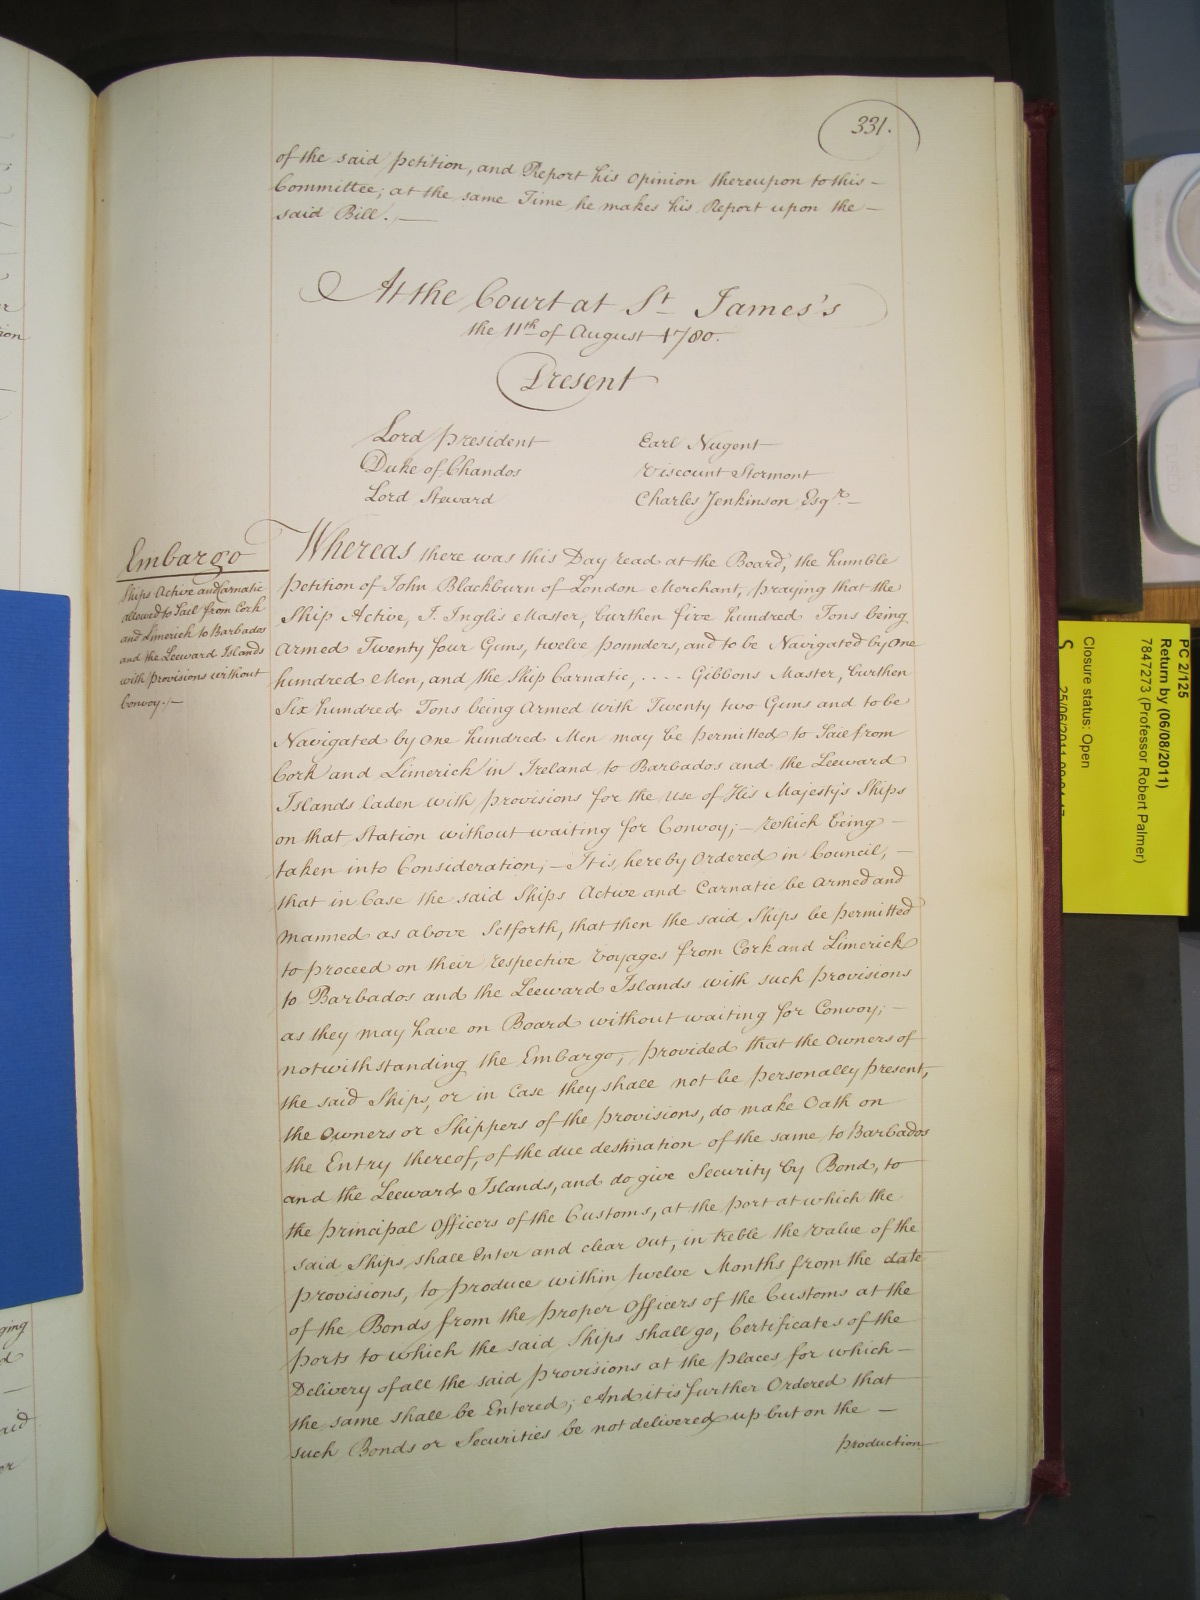 331.
of the said petition, and Report his opinion thereupon to this –
Committee; at the same Time he makes his Report upon the –
said Bill. –
At the Court at St James's
the 11th of August 1780.
Present
Lord President
Earl Nugent
Duke of Chandos
Viscount Stormont
Lord Steward
Charles Jenkinson Esqr. –
Embargo
Ships Active and Carnatic
allowed to Sail from Cork
and Limerick to Barbados
and the Leeward Islands
with provisions without
Convoy. –
Whereas there was this Day read at the Board, the humble
petition of John Blackburn of London Merchant, praying that the
Ship Active, J. Inglis Master, burthen five hundred Tons being
Armed Twenty four Guns, twelve pounders, and to be Navigated by one
hundred Men, and the Ship Carnatic, .... Gibbons Master, burthen
Six hundred Tons being Armed with Twenty two Guns and to be
Navigated by One hundred Men may be permitted to Sail from
Cork and Limerick in Ireland to Barbados and the Leeward
Islands laden with provisions for the use of His Majesty's Ships
on that Station without waiting for Convoy; – Which being –
taken into Consideration, – It is hereby Ordered in Council, –
that in Case the said Ships Active and Carnatic be Armed and
Manned as above Setforth, that then the said Ships be permitted
to proceed on their respective Voyages from Cork and Limerick
to Barbados and the Leeward Islands with such provisions
as they may have on Board without waiting for Convoy; –
notwithstanding the Embargo, provided that the Owners of
the said Ships, or in Case they shall not be personally present,
the Owners or Shippers of the provisions, do make Oath on
the Entry thereof, of the due destination of the same to Barbados
and the Leeward Islands, and do give Security by Bond, to
the principal Officers of the Customs, at the port at which the
said Ships shall Enter and clear Out, in treble the value of the
provisions, to produce within twelve Months from the date
of the Bonds from the proper Officers of the Customs at the
ports to which the said Ships shall go, Certificates of the
Delivery of all the said provisions at the places for which –
the same shall be Entered; And it is further Ordered that
such Bonds or Securities be not delivered up but on the –
production
PC 2/125
Return by (06/08/2011)
7847273 (Professor Robert Palmer)
Closure status: Open
S
ion
ging